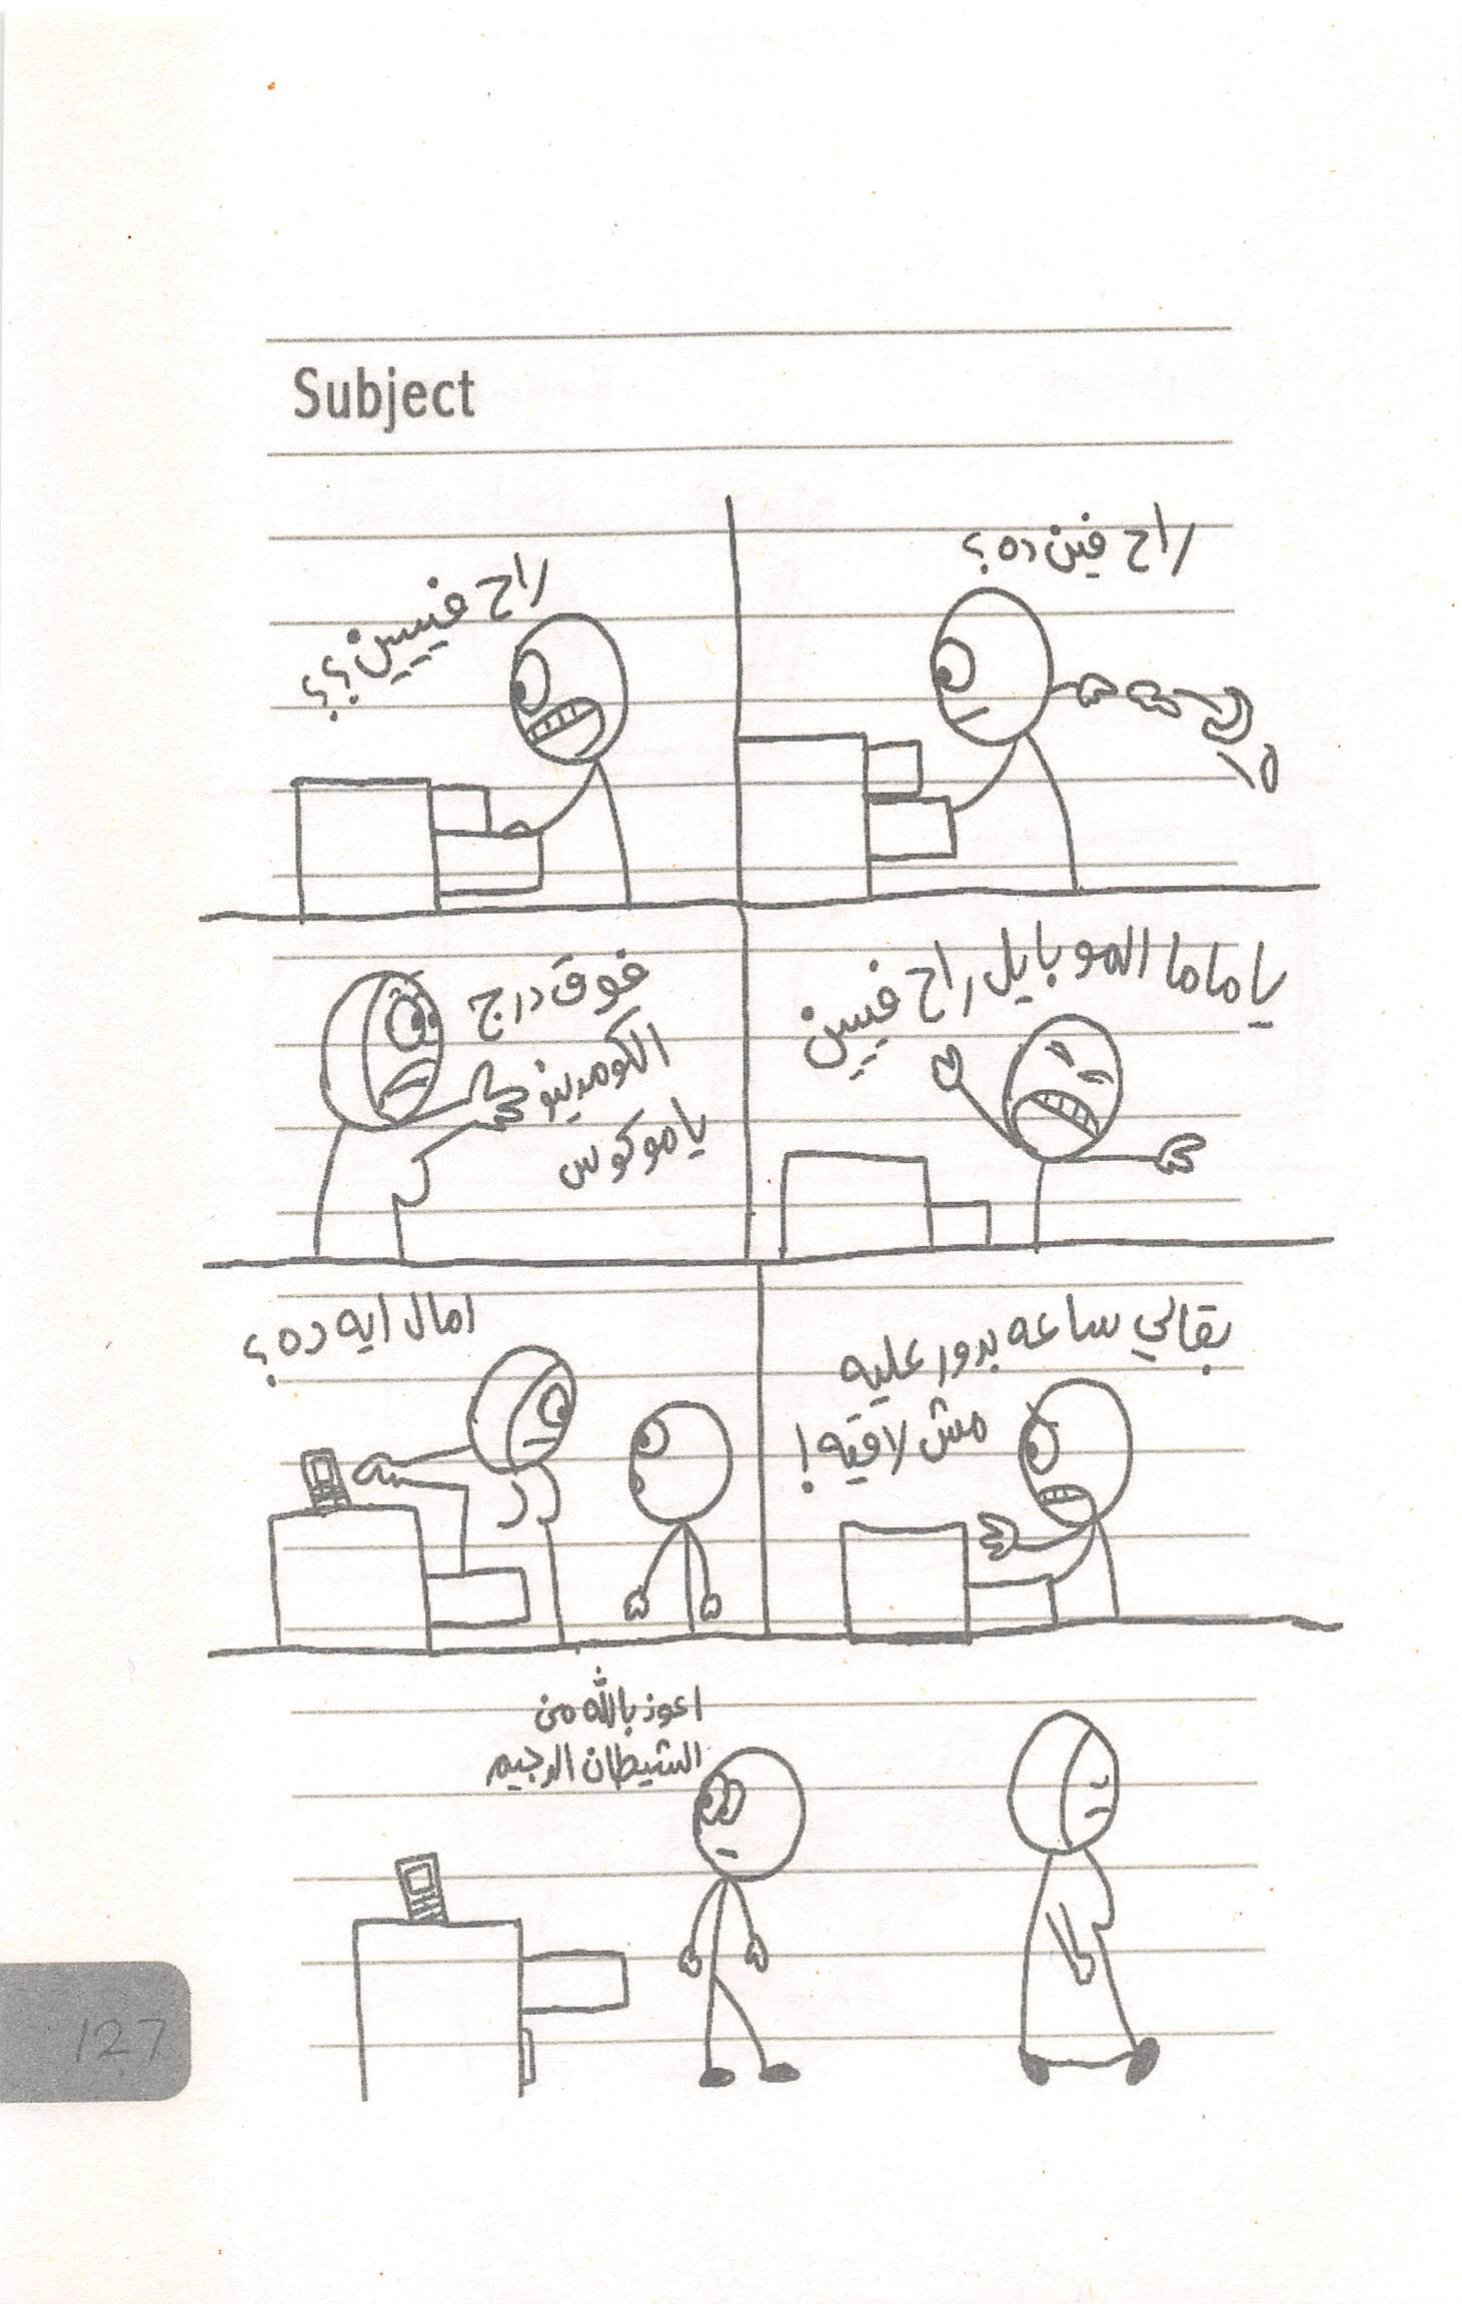 Subject
راح فين ده؟
راح فييين؟؟
يا ماما الموبايل راح فيين
فوق درج
الكومدينو
يا موكوس
بقالي ساعه بدور عليه
مش لاقيه!
امال ايه ده؟
اعوذ بالله من
الشيطان الرجيم
127